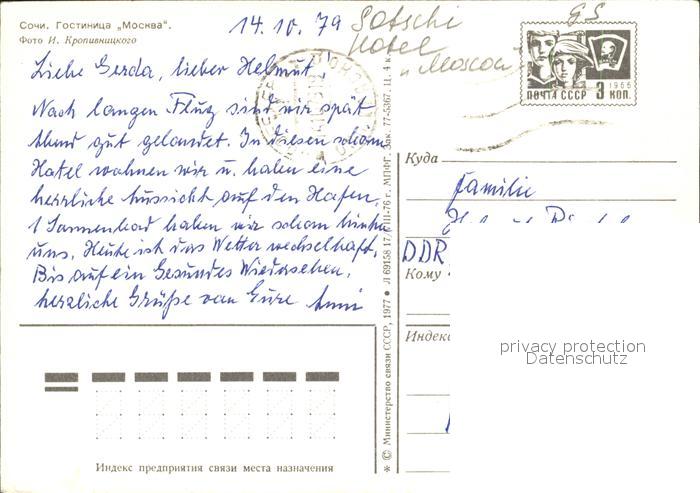 Сочи. Гостиница „Москва".
Фото И. Кропивницкого
14.10.79
Sotschi
Hotel
"Moscou"
GS
Liebe Gerda, lieber Helmut!
Nach langen Flug sind wir spät
Abend gut gelandet. In diesen schönen
Hotel wohnen wir u. haben eine
herrliche Aussicht auf den Hafen.
1 Sonnenbad haben wir schon hinter
uns. Heute ist das Wetter wechselhaft.
Bis auf ein Gesundes Wiedersehen,
herzliche Grüße von Eure Anni
ПОЧТА СССР 3 КОП.
1966
Куда
Familie
DDR
Кому
Индекс
privacy protection
Datenschutz
Индекс предприятия связи места назначения
* © Министерство связи СССР, 1977 • Л 69158 17/VIII-76 г. МПФГ. Зак. 77-5367. Ц. 4 к.